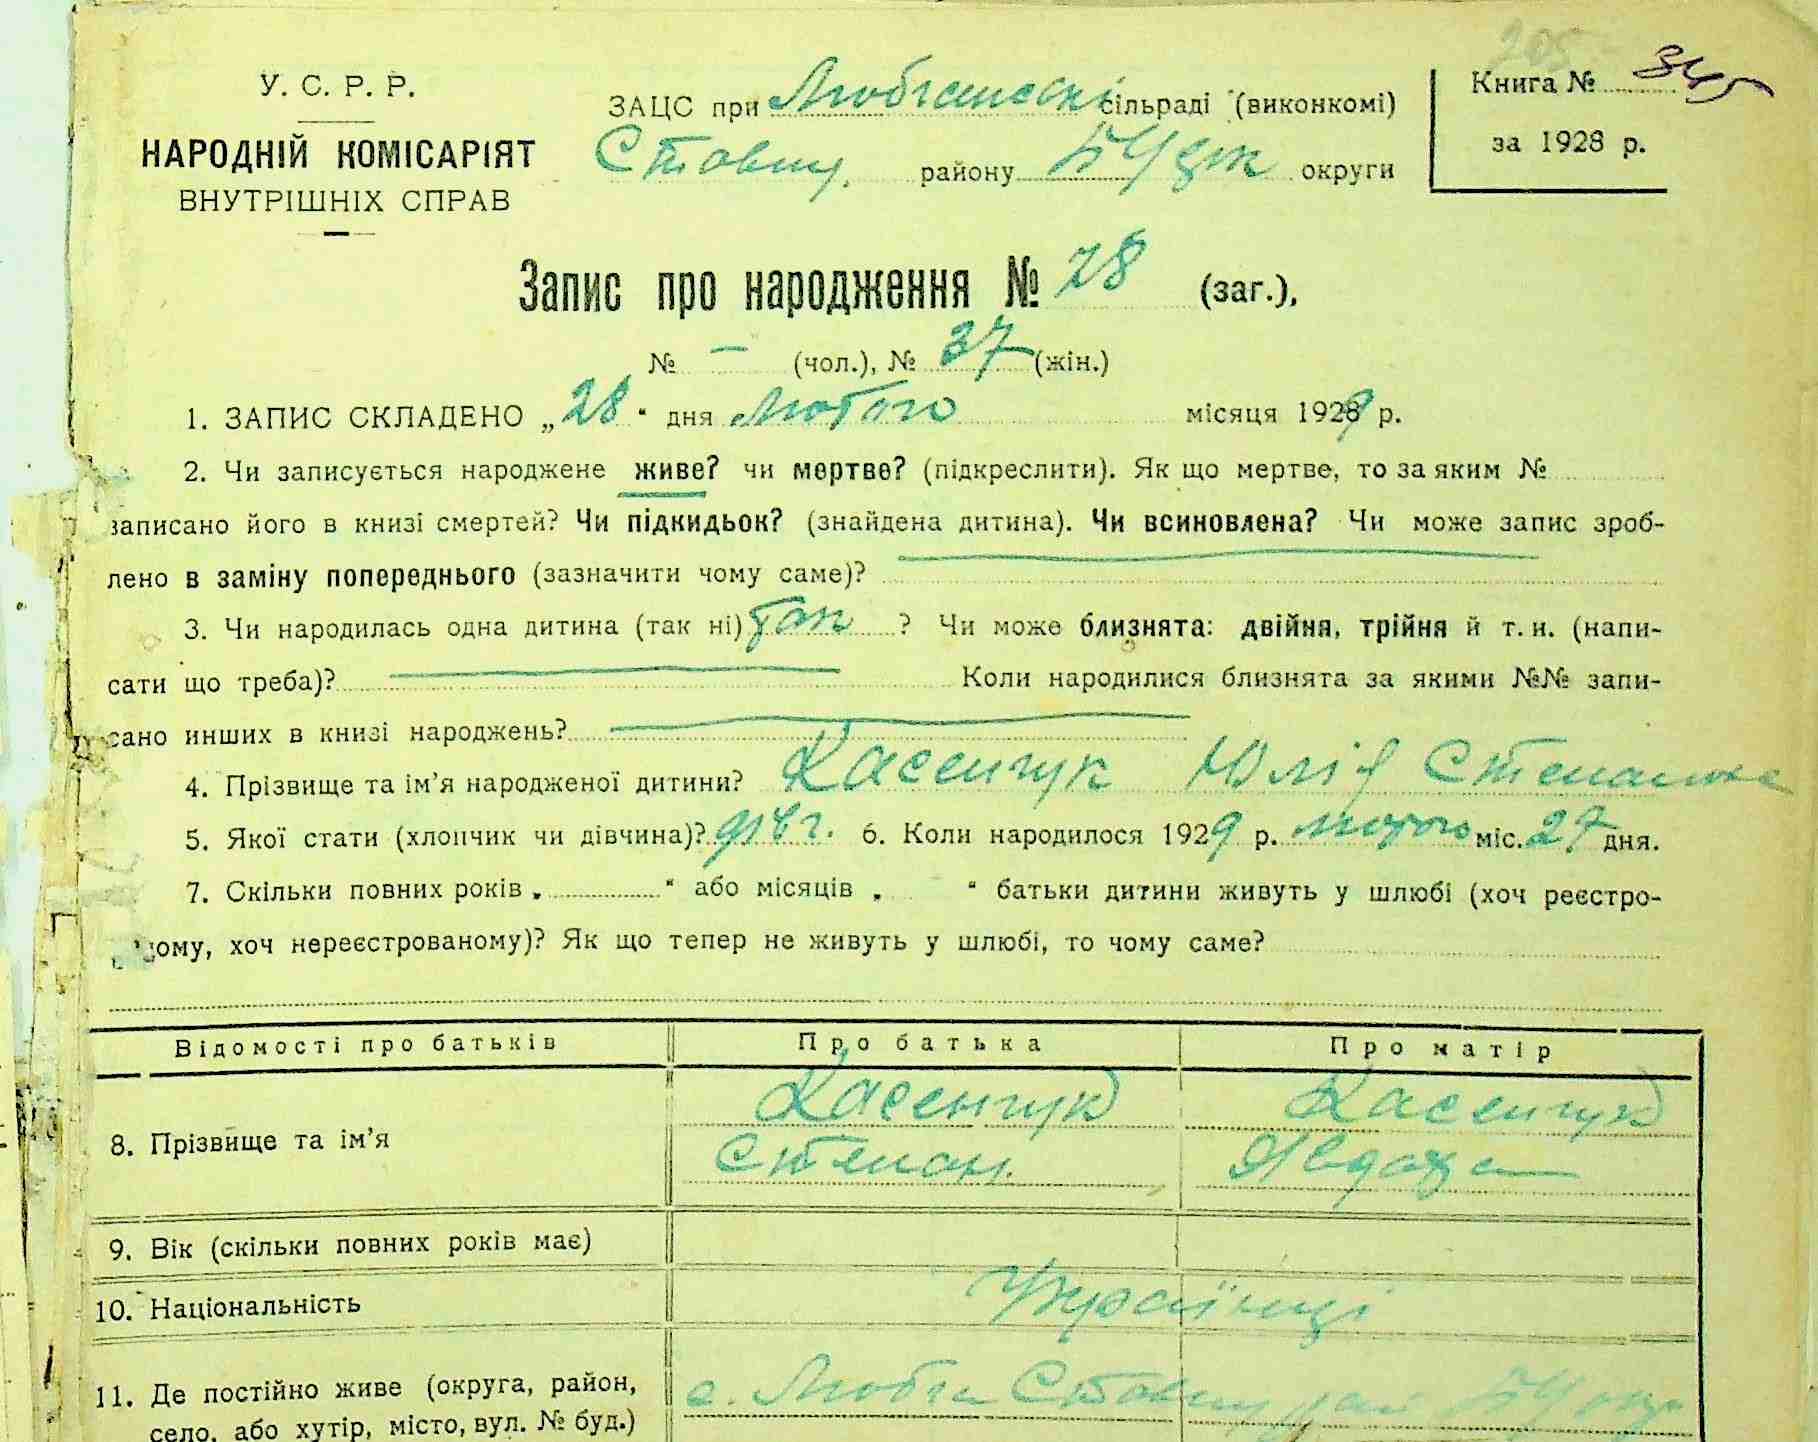 205
У. С. Р. Р.
НАРОДНІЙ КОМІСАРІЯТ
ВНУТРІШНІХ СПРАВ
ЗАЦС при Любчанскі сільраді (виконкомі)
Ставищ. району БЦерк округи
Книга № 345
за 1928 р.
Запис про народження № 28 (заг.),
№ — (чол.), № 37 (жін.)
1. ЗАПИС СКЛАДЕНО „28“ дня Лютого місяця 1929 р.
2. Чи записується народжене живе? чи мертве? (підкреслити). Як що мертве, то за яким №
записано його в книзі смертей? Чи підкидьок? (знайдена дитина). Чи всиновлена? Чи може запис зроб-
лено в заміну попереднього (зазначити чому саме)?
3. Чи народилась одна дитина (так ні) так ? Чи може близнята: двійня, трійня й т. и. (напи-
сати що треба)? Коли народилися близнята за якими №№ запи-
сано инших в книзі народжень?
4. Прізвище та ім’я народженої дитини? Касенчук Юлія Степановна
5. Якої стати (хлопчик чи дівчина)? дівч. 6. Коли народилося 1929 р. лютого міс. 27 дня.
7. Скільки повних років „ “ або місяців „ “ батьки дитини живуть у шлюбі (хоч реєстро-
ому, хоч нереєстрованому)? Як що тепер не живуть у шлюбі, то чому саме?
Відомості про батьків Про батька Про матір
8. Прізвище та ім’я Касенчук Касенчук
Степан Явдоха
9. Вік (скільки повних років має)
10. Національність Українці
11. Де постійно живе (округа, район, с. Любча Ставищ рай БЦ окр.
село, або хутір, місто, вул. № буд.)